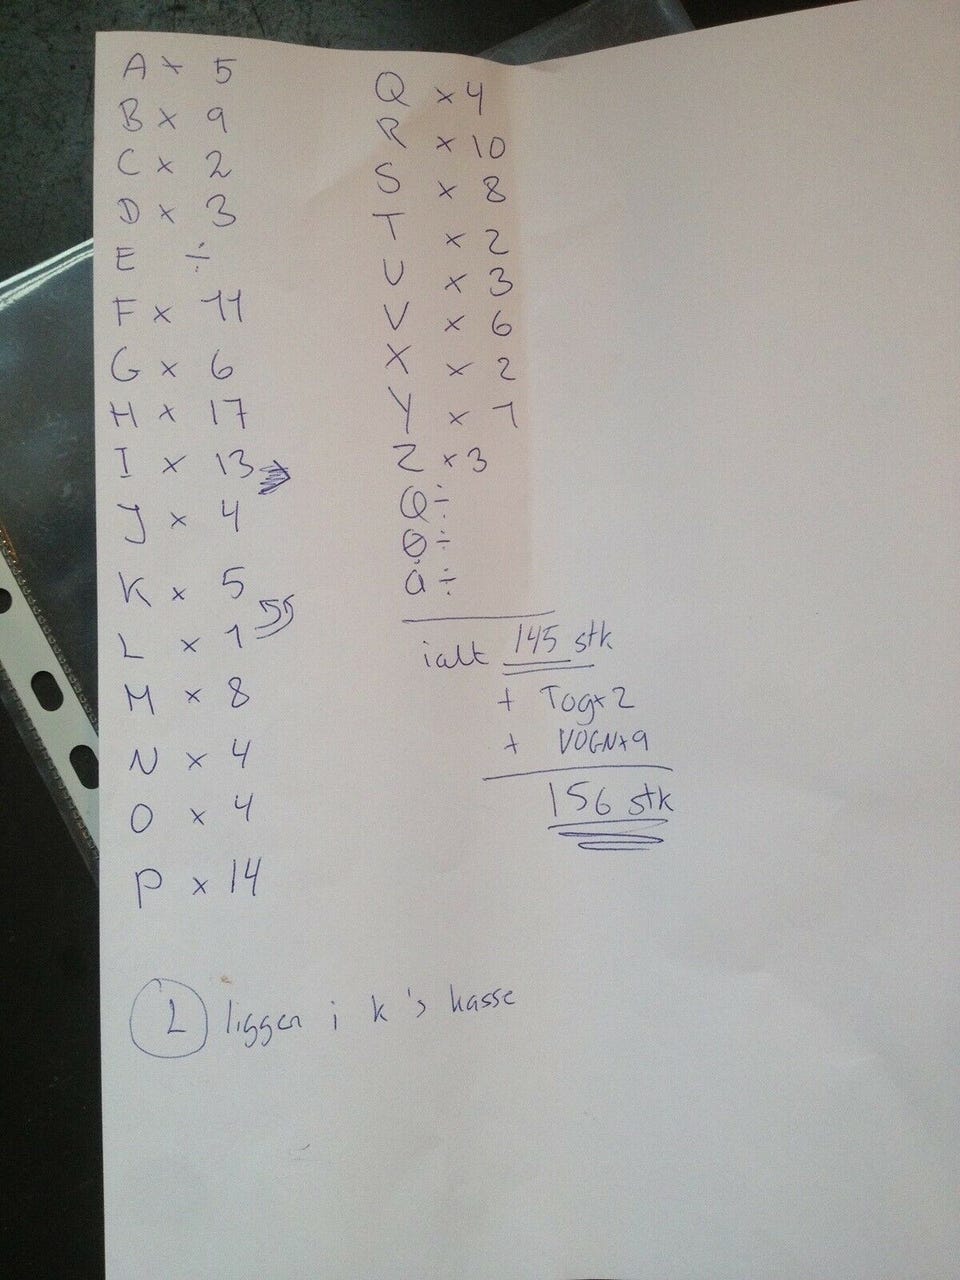 A × 5
B × 9
C × 2
D × 3
E ÷
F × 11
G × 6
H × 17
I × 13
J × 4
K × 5
L × 1
M × 8
N × 4
O × 4
P × 14
Q × 4
R × 10
S × 8
T × 2
U × 3
V × 6
X × 2
Y × 1
Z × 3
Q ÷
Ø ÷
å ÷
ialt 145 stk
+ Tog × 2
+ VOGN × 9
156 stk
L ligger i k's kasse